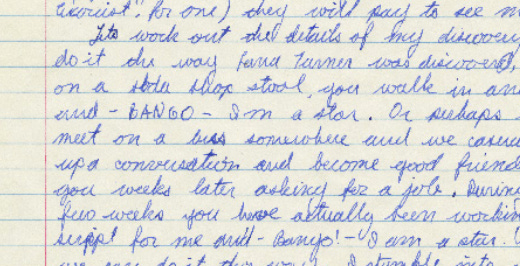 Exorcist", for one) they will pay to see m
Lets work out the details of my discovery
do it the way Lana Turner was discovered,
on a soda shop stool, you walk in an
and - BANGO - I'm a star. Or perhaps
meet on a bus somewhere and we casua
up a conversation and become good friend
you weeks later asking for a job. During
few weeks you have actually been workin
script for me and - Bango! - I am a star.
we can do it this way. I stumble into